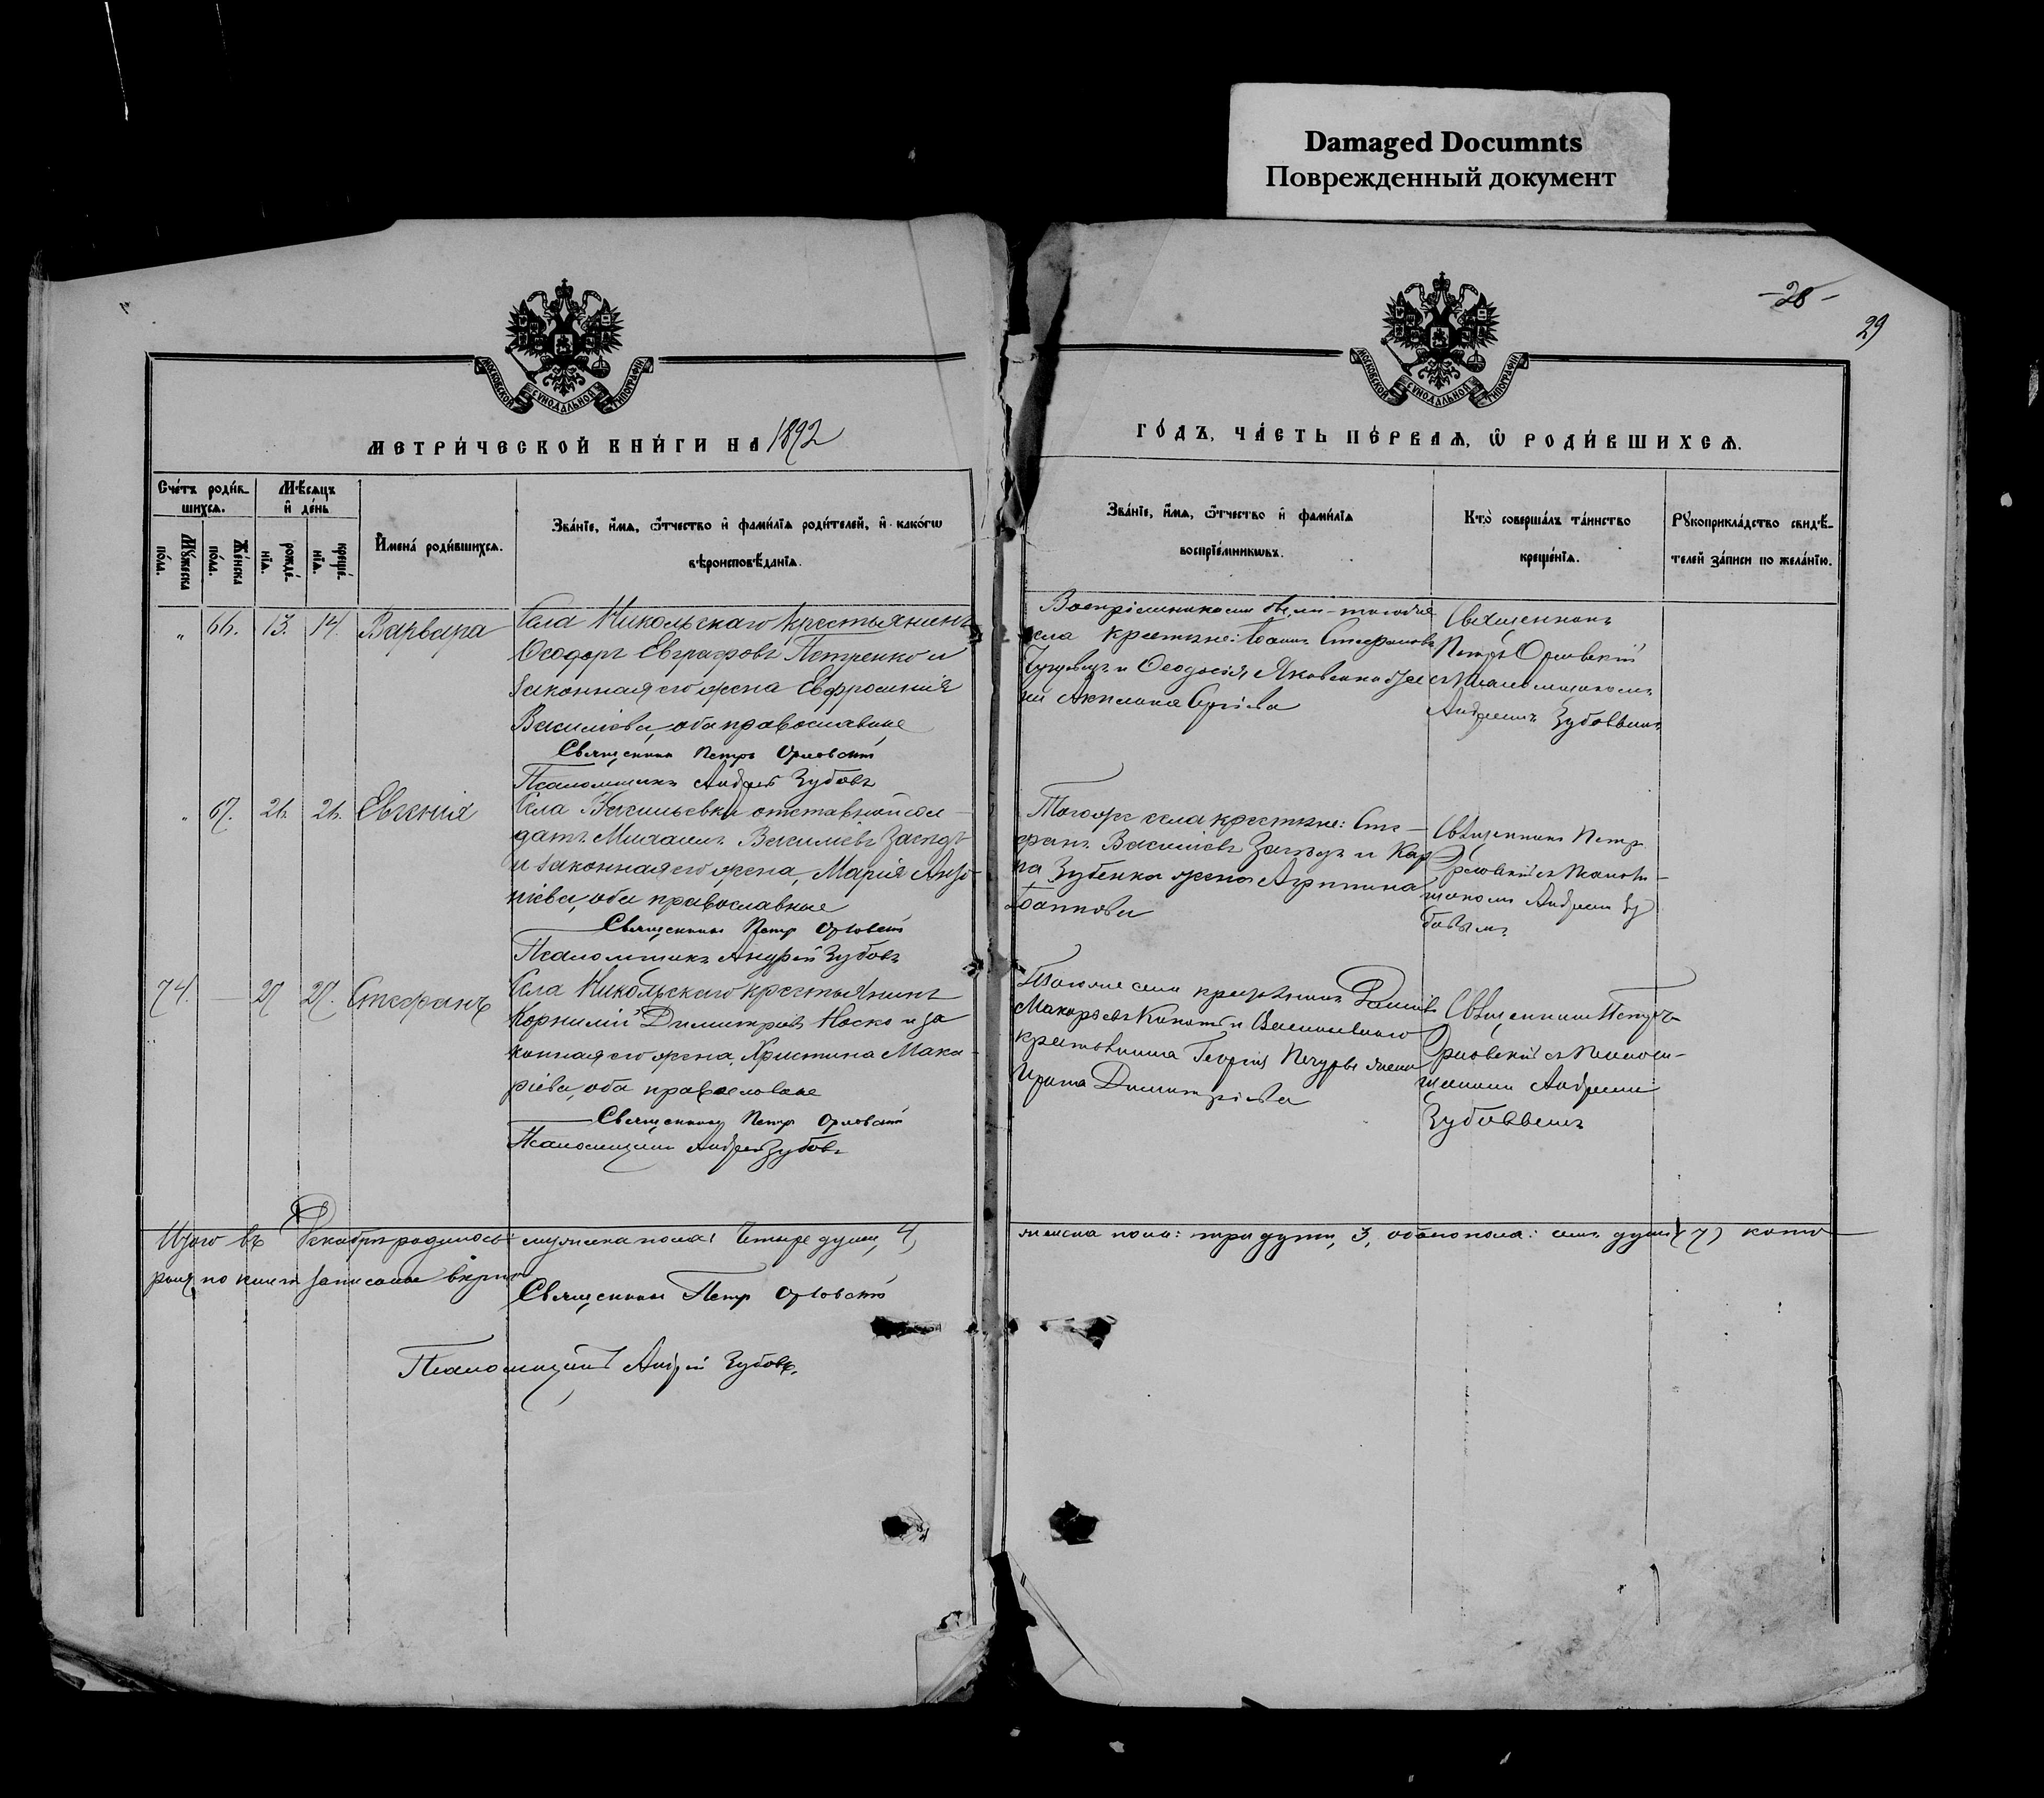 Damaged Documnts
Поврежденный документ
- 28 -
29
МОСКОВСКОЙ СѴНОДАЛЬНОЙ ТИПОГРАФІИ
МОСКОВСКОЙ СѴНОДАЛЬНОЙ ТИПОГРАФІИ
МЕТРИ́ЧЕСКОЙ КНИ́ГИ НА 1892
ГО́ДЪ, ЧА́СТЬ ПЕ́РВАѦ, Ѡ҆ РОДИ́ВШИХСѦ.
Сче́тъ роди́в-
шихсѧ.
Мꙋ́жеска по́ла.
Же́нска по́ла.
Мѣ́сѧцъ
и҆ де́нь
рожде́-
нїѧ.
креще́-
нїѧ.
И҆мена̀ роди́вшихсѧ.
Зва́нїе, и҆́мѧ, ѻ҆́тчество и҆ фами́лїѧ роди́телей, и҆ како́гѡ
вѣроисповѣ́данїѧ.
Зва́нїе, и҆́мѧ, ѻ҆́тчество и҆ фами́лїѧ
воспрїе́мникѡвъ.
Кто̀ соверша́лъ та́инство
креще́нїѧ.
Рꙋкоприкла́дство свидѣ́-
телей за́писи по жела́нїю.
" 66. 13. 14. Варвара
Села Никольскаго крестьянинъ
Ѳеодоръ Евграфовъ Петренко и
законная его жена Евфросинія
Василіева, оба православные
Священникъ Петръ Орловскій
Псаломщикъ Андрей Зубовъ
Воспріемниками были: тогоже
села крестьяне: Іоаннъ Стефановъ
и Ѳеодосія Яковенкова
Акилина
Священникъ
Петръ Орловскій
съ псаломщикомъ
Андреемъ Зубовымъ
" 67. 26. 26. Евгенія
Села Васильевки отставной сол-
датъ Михаилъ Василіевъ Загнѣ
и законная его жена, Марія Анто-
ніева, оба православные
Священникъ Петръ Орловскій
Псаломщикъ Андрей Зубовъ
Тогоже села крестьяне: Сте-
фанъ Василіевъ и Кар
па Зубенка жена Агрипина
Іоаннова
Священникъ Петръ
Орловскій съ псалом-
щикомъ Андреемъ Зу
бовымъ
74. 27 27. Стефанъ
Села Никольскаго крестьянинъ
Корнилій Димитріевъ Носко и за
конная его жена, Христина Мака-
ріева, оба православные
Священникъ Петръ Орловскій
Псаломщикъ Андрей Зубовъ
Тогоже села крестьянинъ
Макарьевъ и Васильевскаго
крестьянина Георгія жена
Ирина Димитріева
Священникъ Петръ
Орловскій съ псалом-
щикомъ Андреемъ
Зубовымъ
Итого въ Декабрѣ родилось мужеска пола: Четыре души, 4,
женска пола: три души, 3, обоего пола: семь душъ (7) кото
рыя по книгѣ записаны вѣрно
Священникъ Петръ Орловскій
Псаломщикъ Андрей Зубовъ.